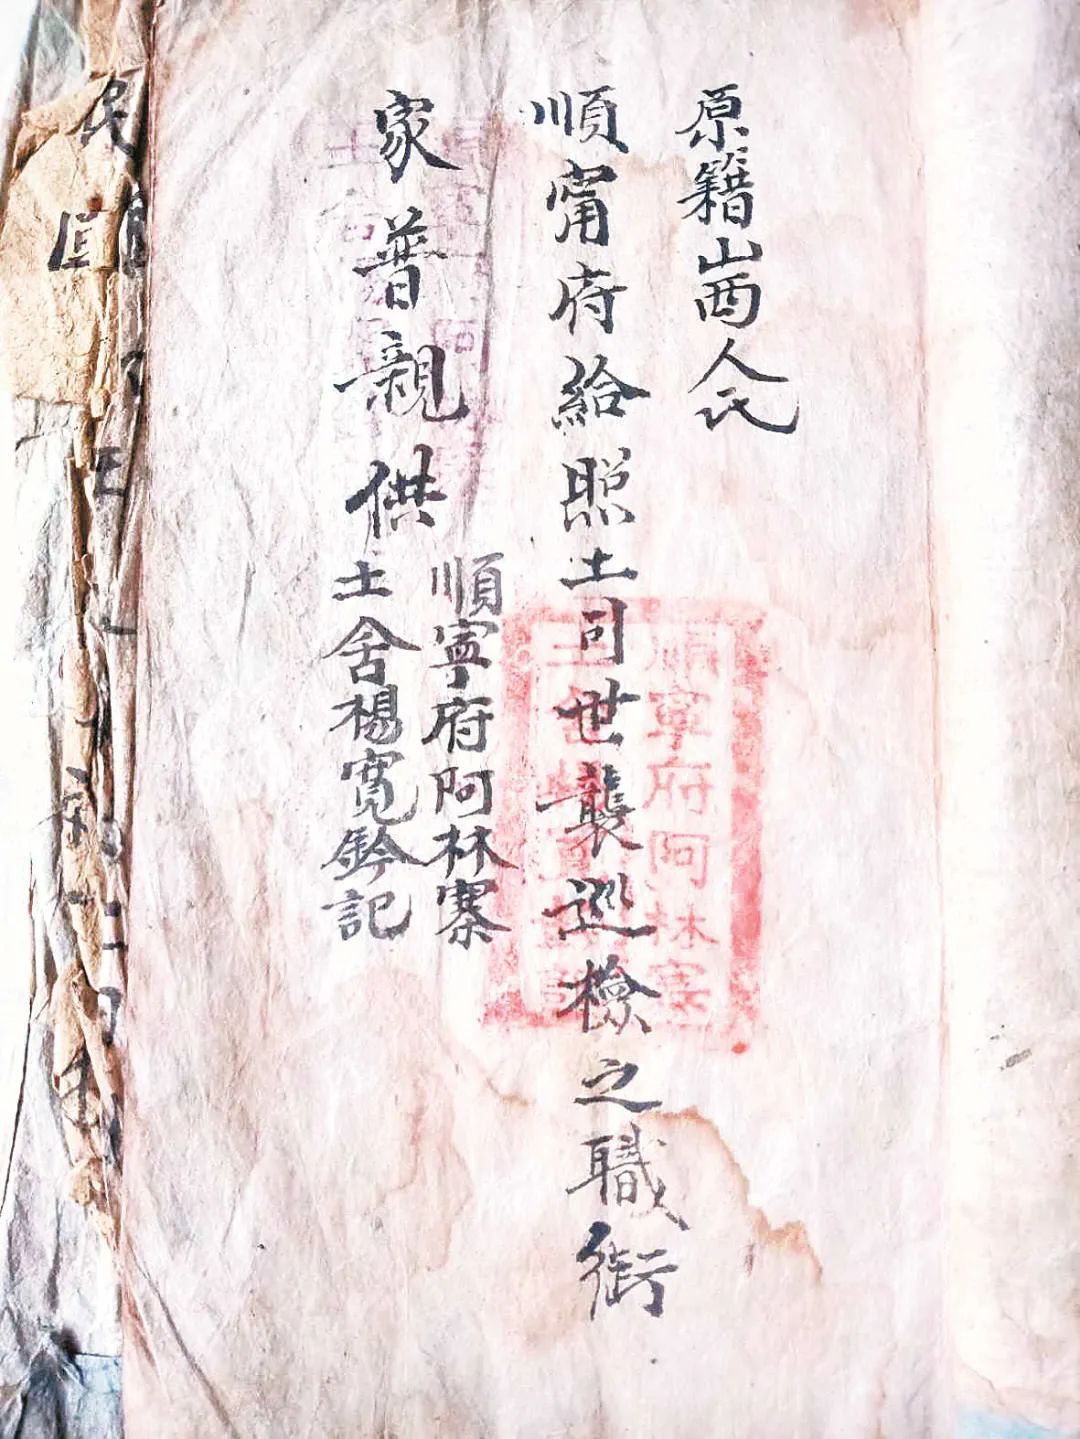 原籍山西人氏
順甯府給照土司世襲巡檢之職銜
家普親供
順寧府阿林寨
土舍楊寬鈐記
順寧府阿林寨